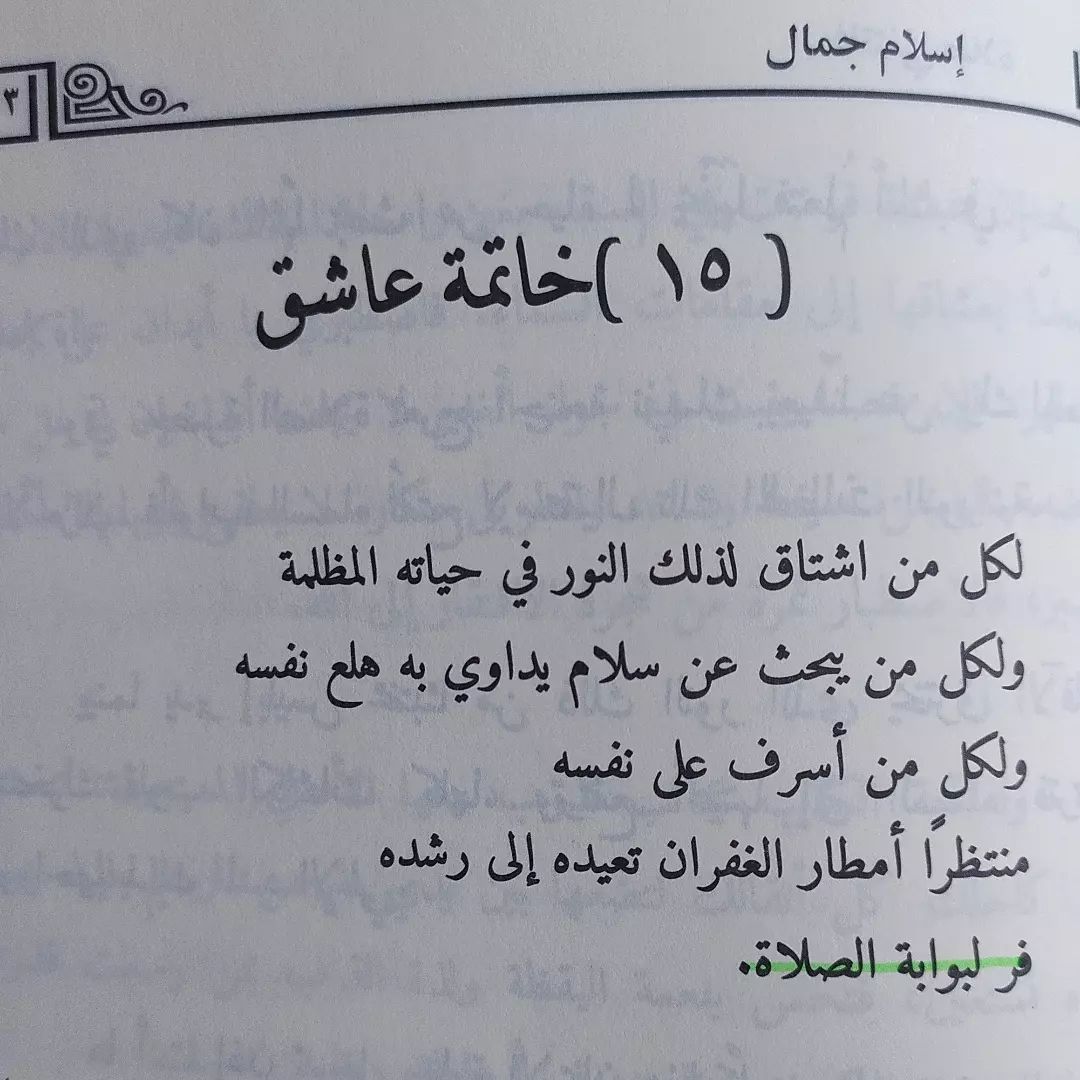 إسلام جمال
٣
( ١٥ )خاتمة عاشق
لكل من اشتاق لذلك النور في حياته المظلمة
ولكل من يبحث عن سلام يداوي به هلع نفسه
ولكل من أسرف على نفسه
منتظراً أمطار الغفران تعيده إلى رشده
فر لبوابة الصلاة.